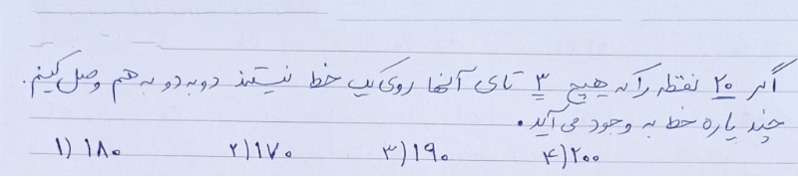 اگر ۲۰ نقطه را که هیچ ۳ تای آنها روی یک خط نیستند دو به دو به هم وصل کنیم.
چند پاره خط به وجود می آید.
۱) ۱۸۰ ۲) ۱۷۰ ۳) ۱۹۰ ۴) ۲۰۰